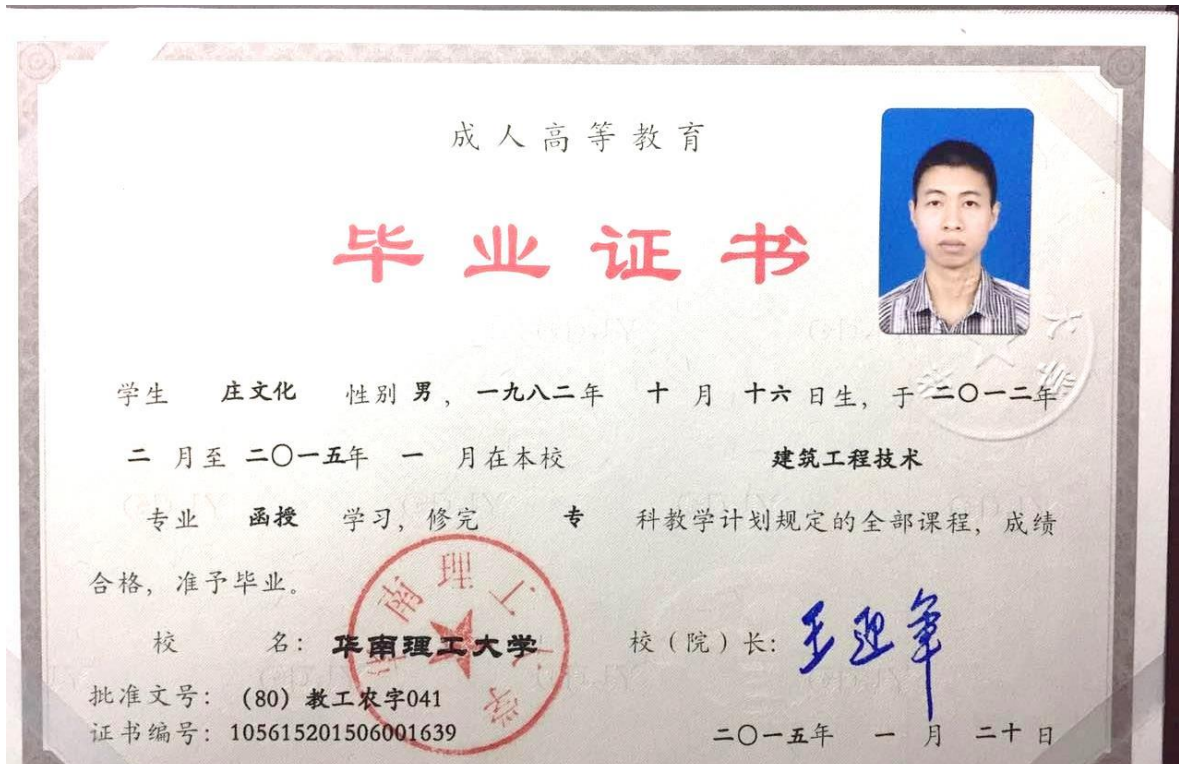 成人高等教育
毕业证书
学生 庄文化 性别 男，一九八二年 十 月 十六 日生，于 二〇一二年
二 月至 二〇一五年 一 月在本校 建筑工程技术
专业 函授 学习，修完 专 科教学计划规定的全部课程，成绩
合格，准予毕业。
校 名：华南理工大学 校（院）长：王迎军
批准文号：（80）教工农字041
证书编号：105615201506001639 二〇一五年 一 月 二十 日
华南理工大学